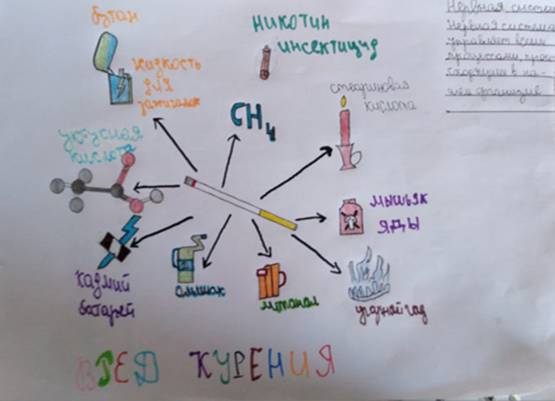 бутан
жидкость
для
зажигалок
никотин
инсектицид
стеариновая
кислота
CH4
уксусная
кислота
мышьяк
яды
кадмий
батарей
аммиак
метанол
угарный газ
ВРЕД КУРЕНИЯ
Нервная систем
Нервная система
управляет всеми
процессами, прои
сходящие в на
шем организме